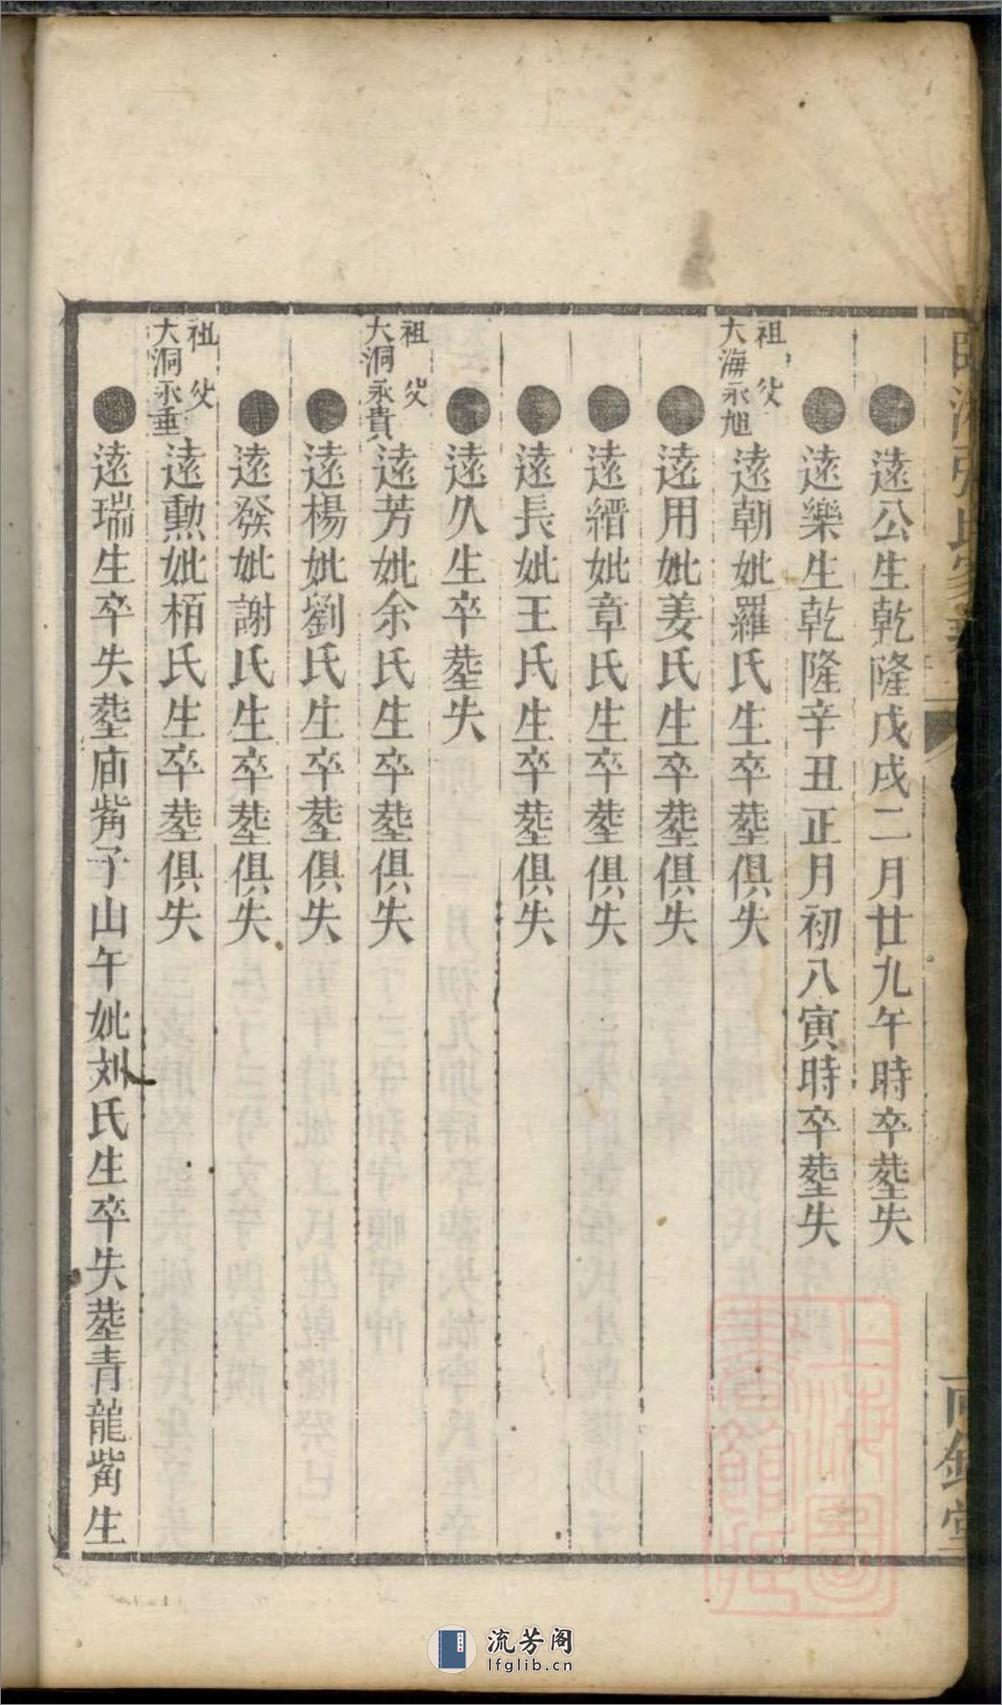 遠公生乾隆戊戌二月廿九午時卒塟失
遠樂生乾隆辛丑正月初八寅時卒塟失
祖父
大海永旭
遠朝妣羅氏生卒塟俱失
遠用妣姜氏生卒塟俱失
遠縉妣章氏生卒塟俱失
遠長妣王氏生卒塟俱失
遠久生卒塟失
祖父
大洞永貴
遠芳妣余氏生卒塟俱失
遠楊妣劉氏生卒塟俱失
遠發妣謝氏生卒塟俱失
祖父
大洞永垂
遠勲妣栢氏生卒塟俱失
遠瑞生卒失塟庙觜子山午妣刘氏生卒失塟青龍觜生
流芳阁
lfglib.cn